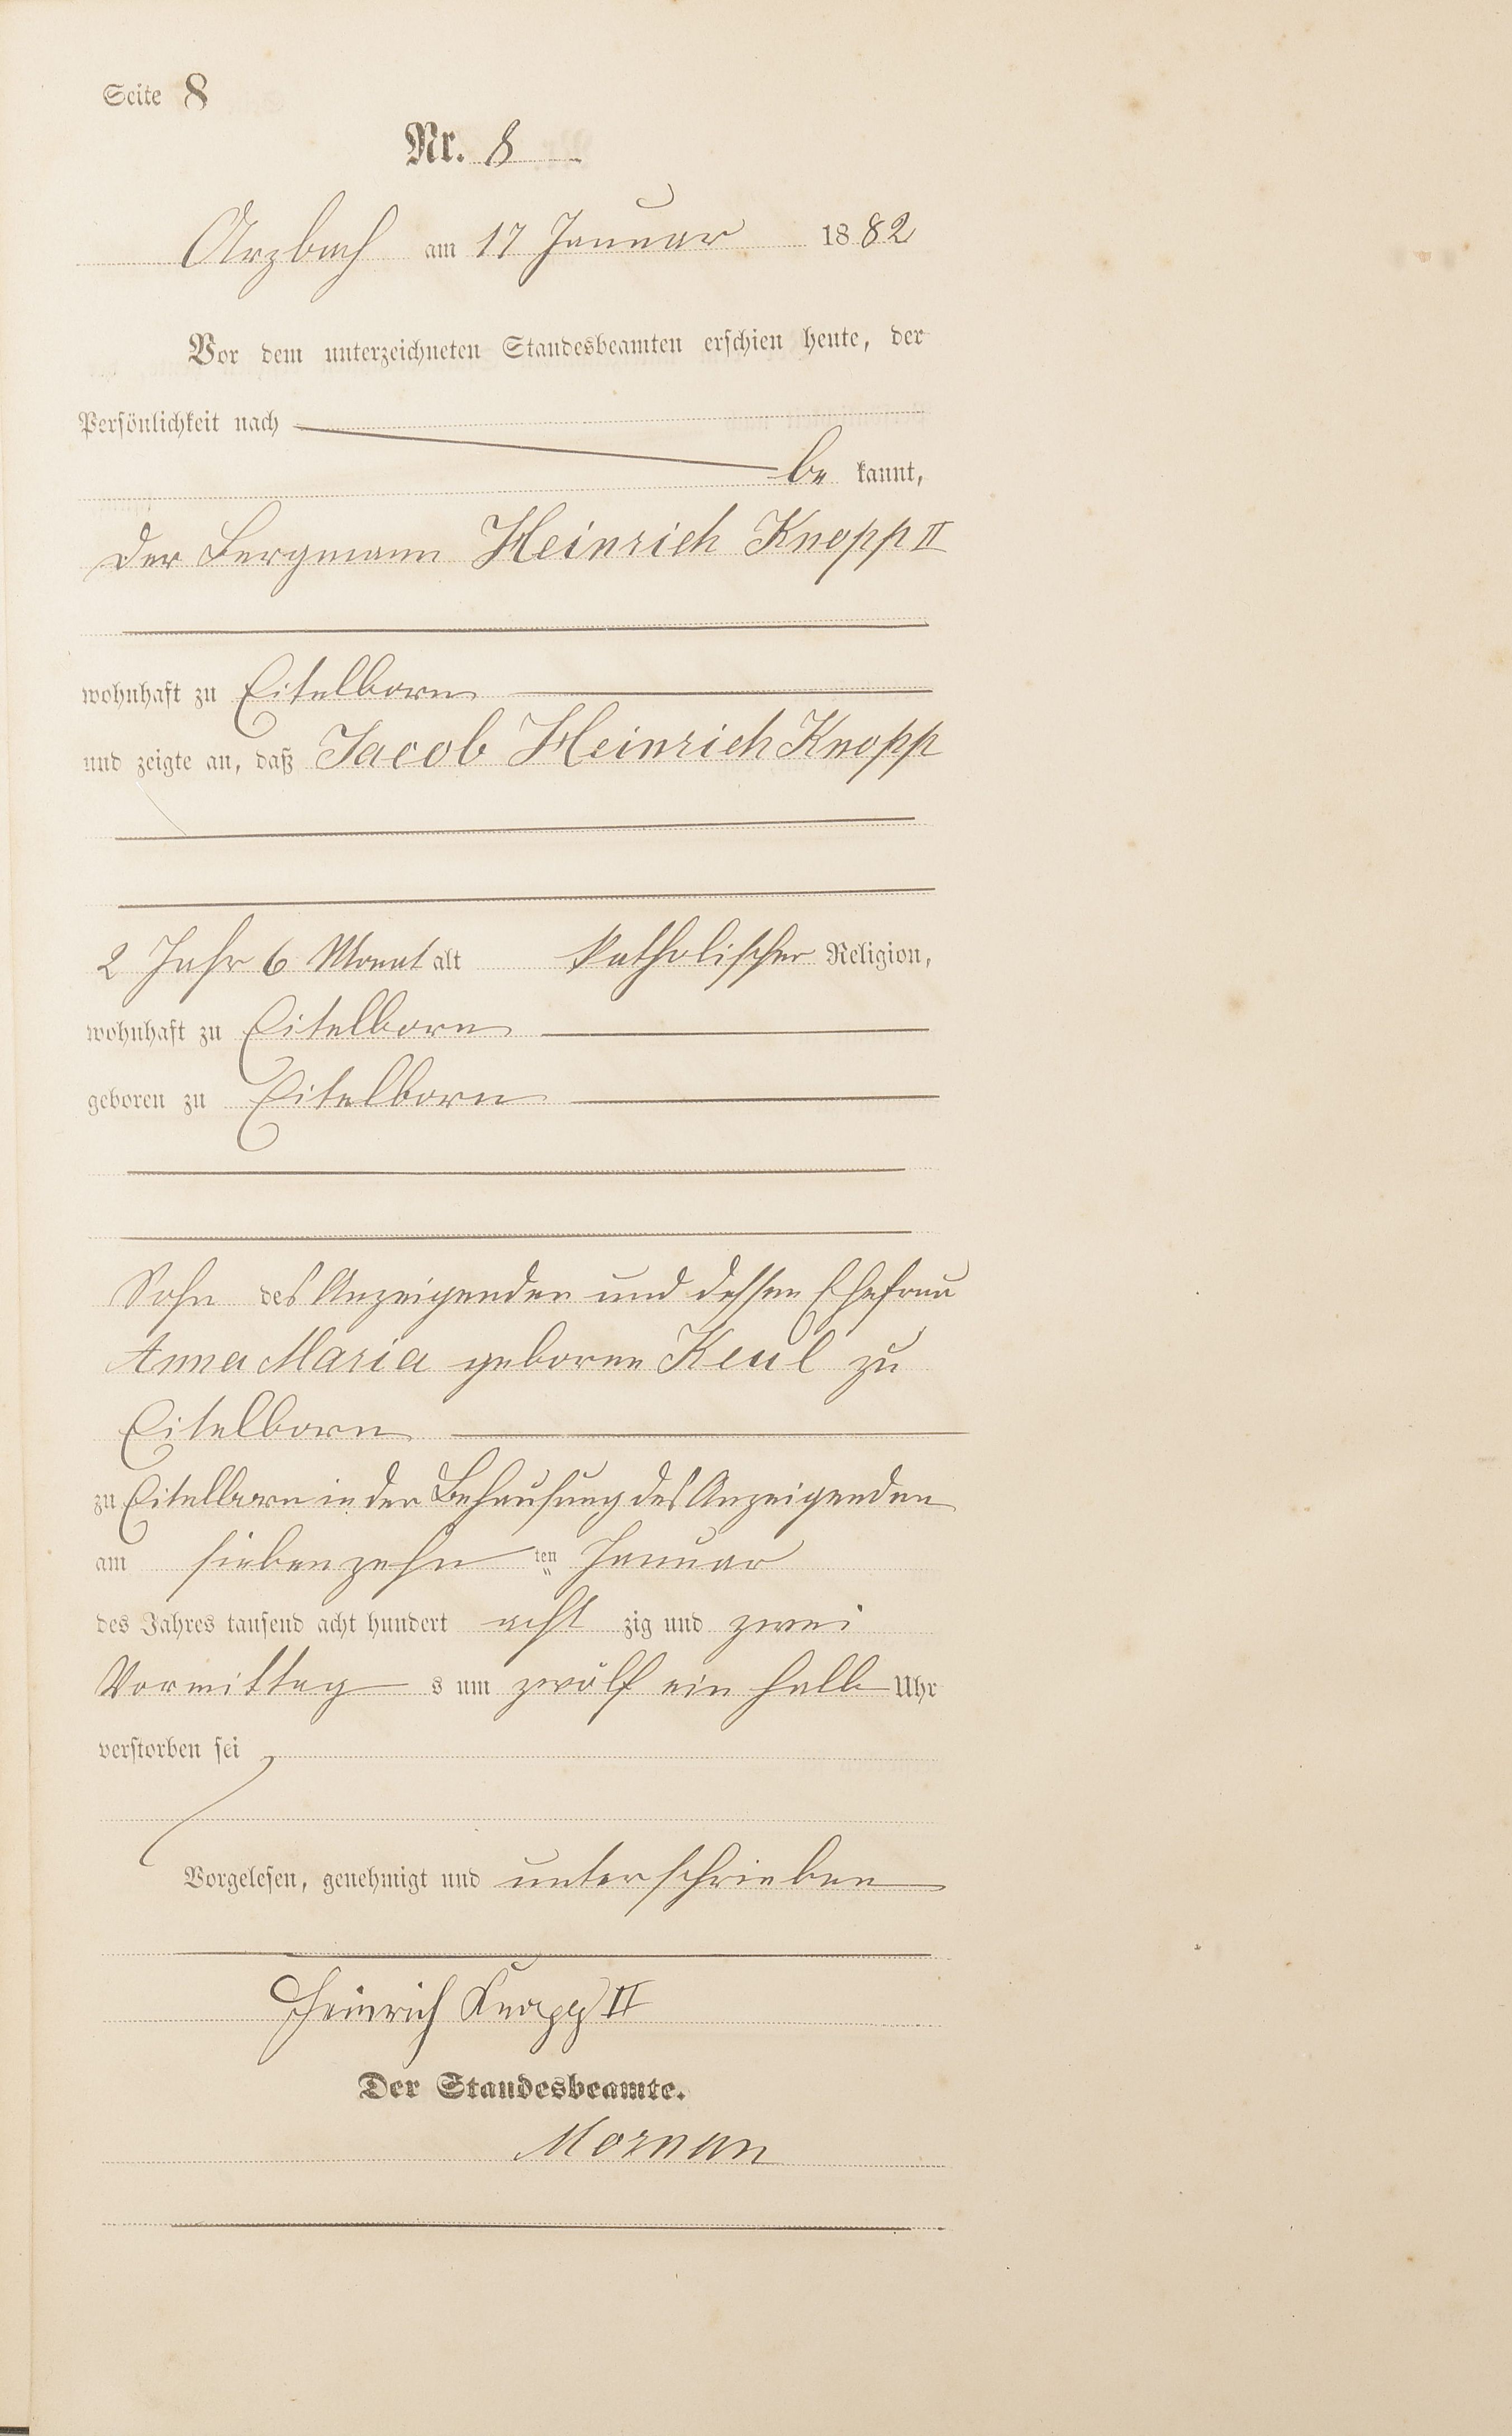 Seite 8
Nr. 8
Arzbach am 17 Januar 1882
Vor dem unterzeichneten Standesbeamten erschien heute, der
Persönlichkeit nach
be kannt,
der Bergmann Heinrich Knopp II
wohnhaft zu Eitelborn
und zeigte an, daß Jacob Heinrich Knopp
2 Jahr 6 Monat alt katholischer Religion,
wohnhaft zu Eitelborn
geboren zu Eitelborn
Sohn des Anzeigenden und dessen Ehefrau
Anna Maria geborne Keul zu
Eitelborn
zu Eitelborn in der Behausung des Anzeigenden
am siebenzehn ten Januar
des Jahres tausend acht hundert acht zig und zwei
Vormittag s um zwölf ein halb Uhr
verstorben sei
Vorgelesen, genehmigt und unterschrieben
Heinrich Knopp II
Der Standesbeamte.